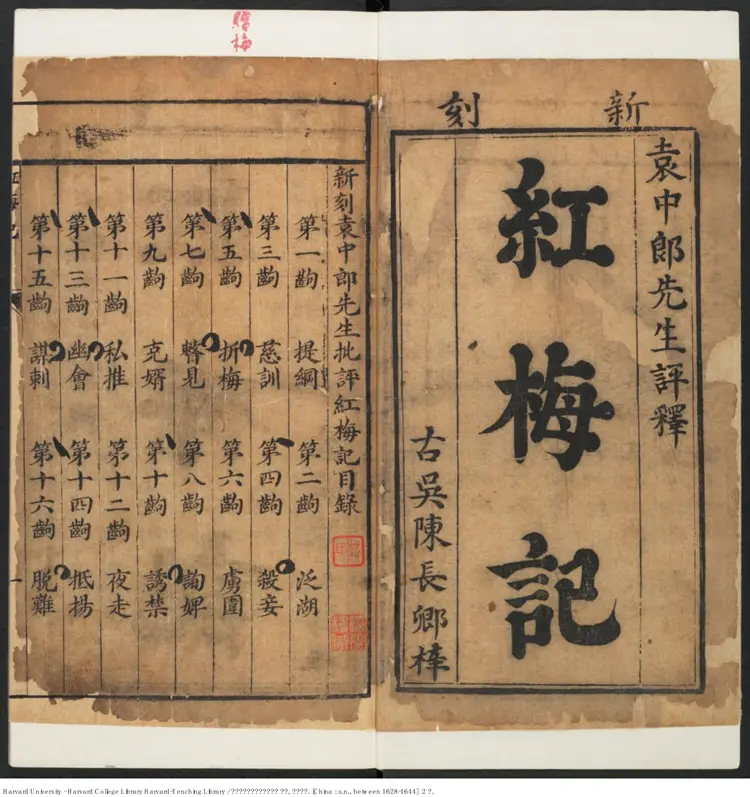 新刻
袁中郎先生評釋
紅梅記
古吳陳長卿梓
新刻袁中郎先生批評紅梅記目錄
第一齣 提綱 第二齣 泛湖
第三齣 慈訓 第四齣 殺妾
第五齣 折梅 第六齣 虜圍
第七齣 瞥見 第八齣 詢婢
第九齣 克婿 第十齣 誘禁
第十一齣 私推 第十二齣 夜走
第十三齣 幽會 第十四齣 抵揚
第十五齣 謀刺 第十六齣 脫難
Harvard University - Harvard College Library Harvard-Yenching Library / ???????????? ??, ????. [China : s.n., between 1628-1644] 2 ?.